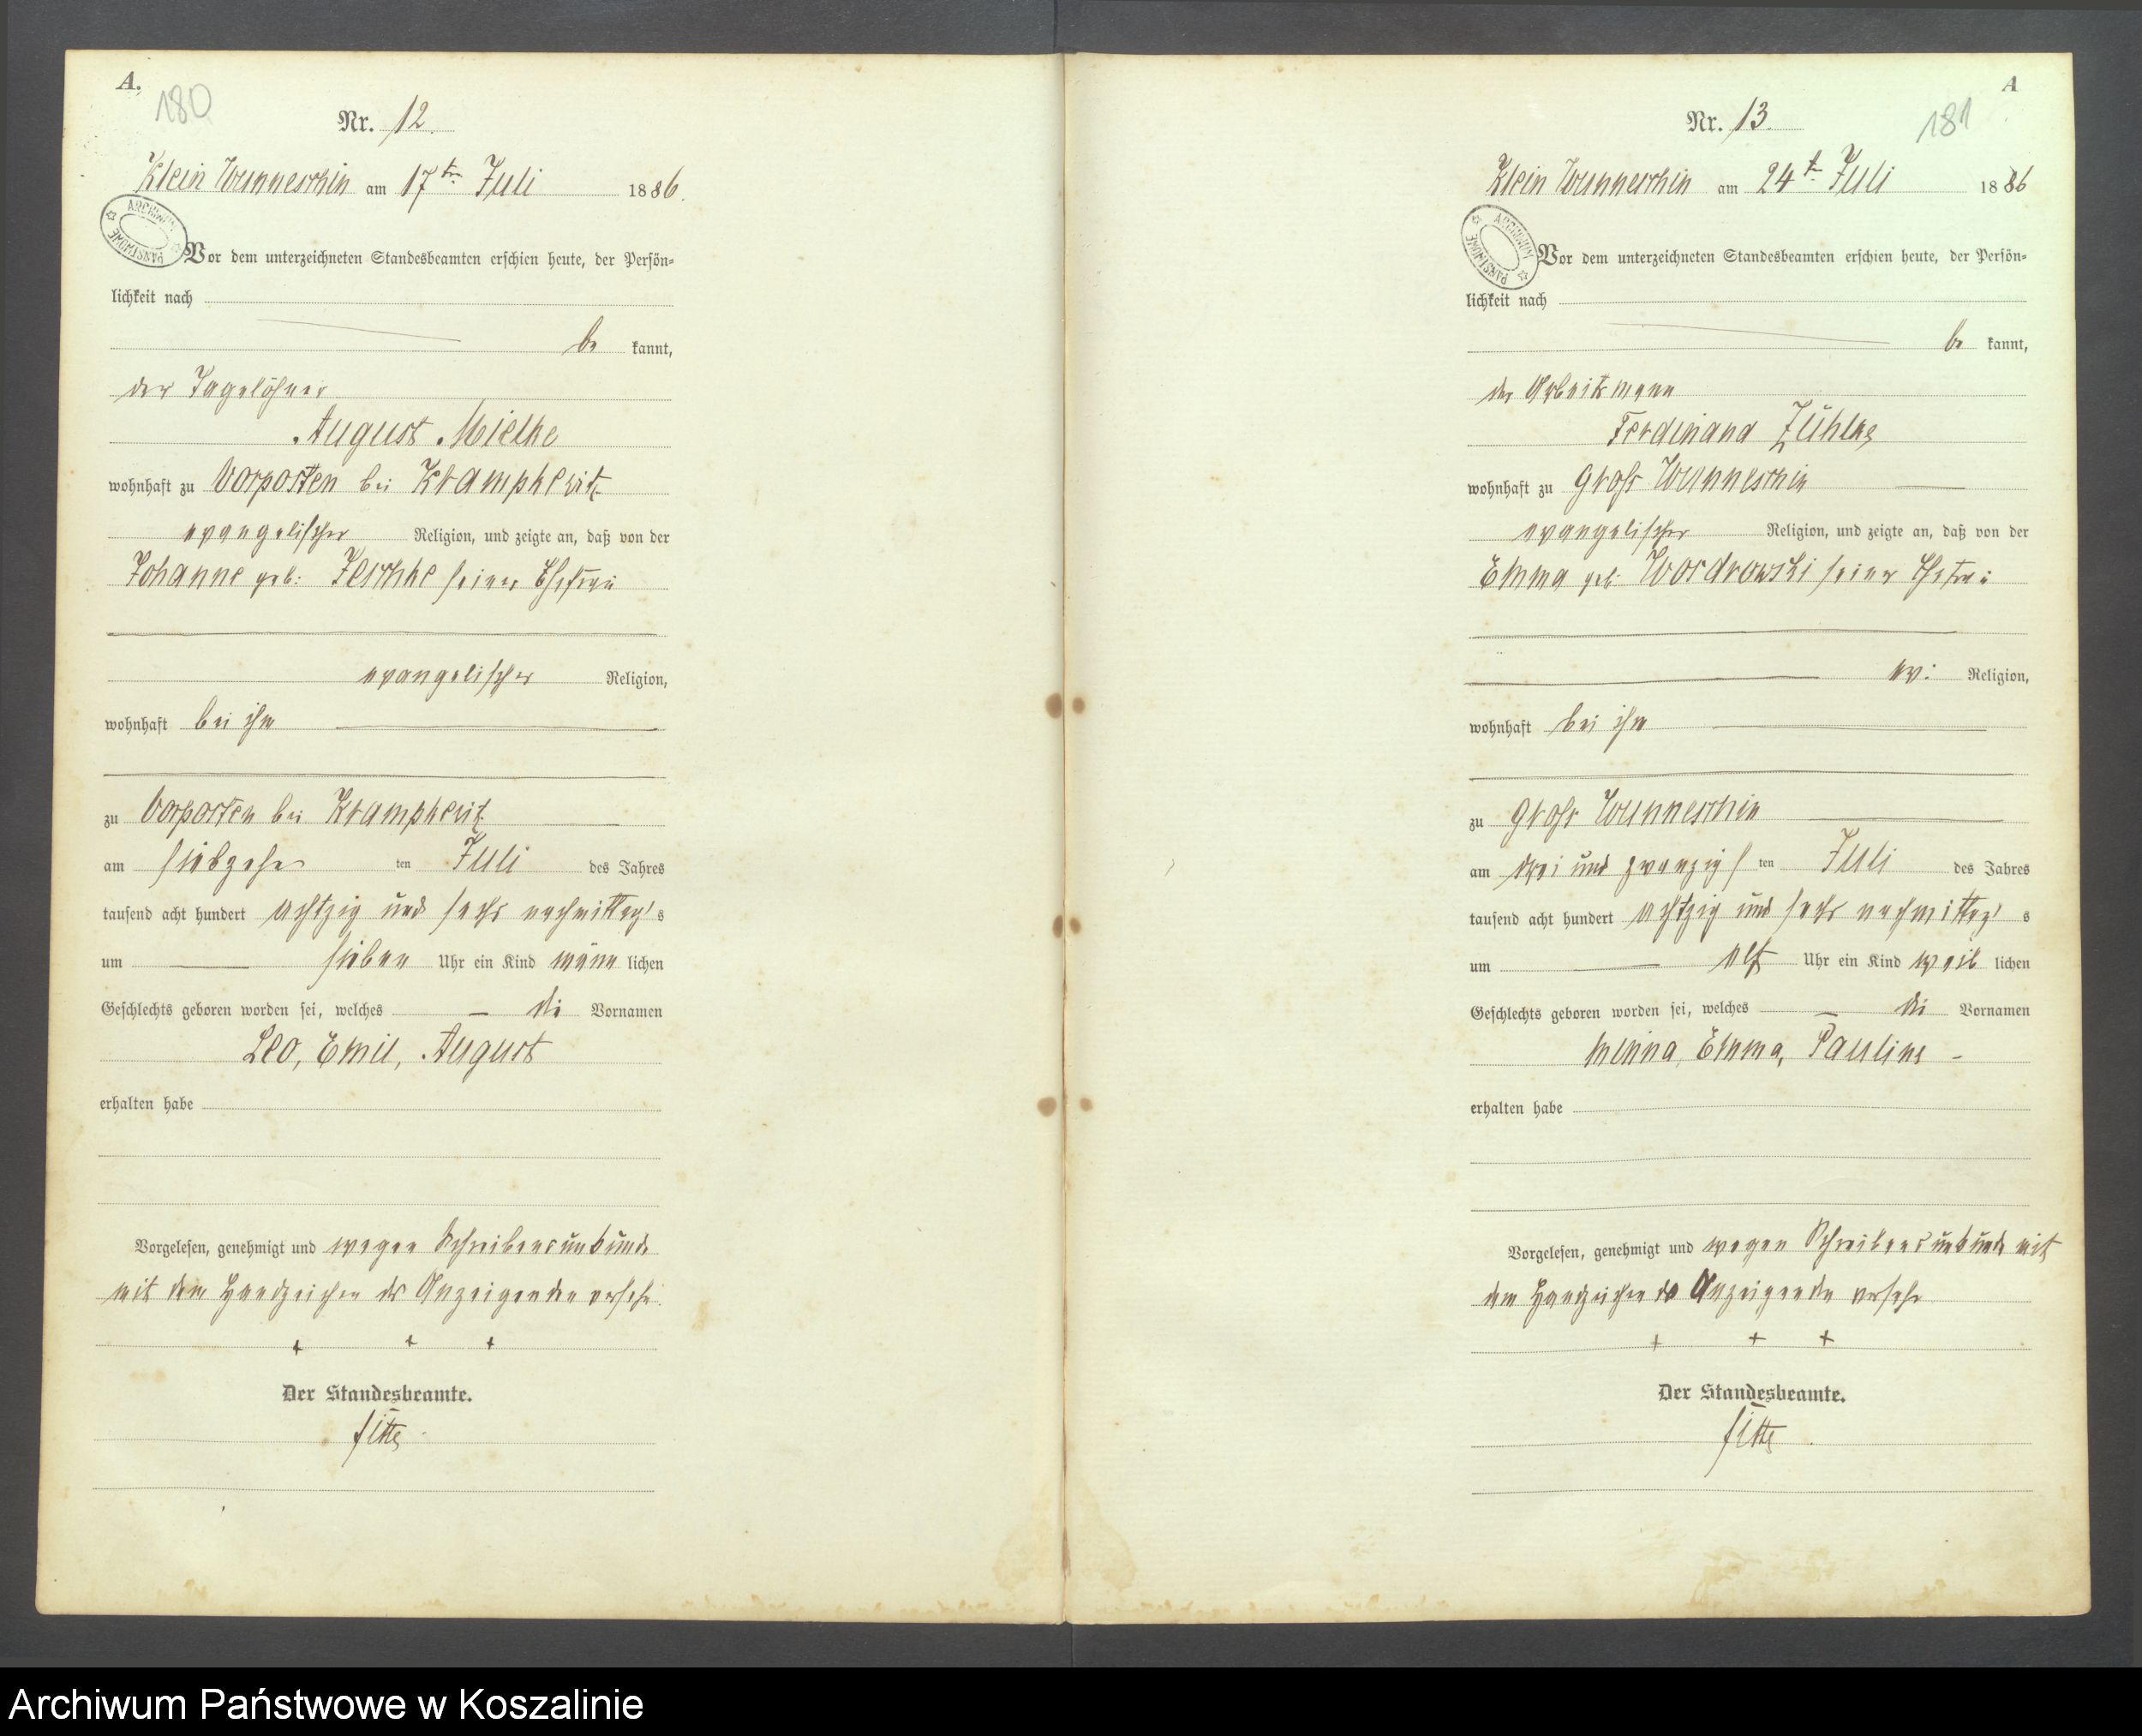 A.
180
Nr. 12.
Klein Wunneschin am 17ten Juli 1886.
ARCHIWUM PAŃSTWOWE
Vor dem unterzeichneten Standesbeamten erschien heute, der Persön-
lichkeit nach
be kannt,
der Tagelöhner
August Mielke
wohnhaft zu Vorposten bei Krampkewitz
evangelischer Religion, und zeigte an, daß von der
Johanne geb: Jeschke seiner Ehefrau
evangelischer Religion,
wohnhaft bei ihm
zu Vorposten bei Krampkewitz
am siebzehn ten Juli des Jahres
tausend acht hundert achtzig und sechs nachmittags
um sieben Uhr ein Kind männlichen
Geschlechts geboren worden sei, welches die Vornamen
Leo, Emil, August
erhalten habe
Vorgelesen, genehmigt und wegen Schreibensunkunde
mit dem Handzeichen des Anzeigenden versehn.
+ + +
Der Standesbeamte.
A
181
Nr. 13.
Klein Wunneschin am 24t Juli 1886
ARCHIWUM PAŃSTWOWE
Vor dem unterzeichneten Standesbeamten erschien heute, der Persön-
lichkeit nach
be kannt,
der Arbeitsmann
Ferdinand Zühlke
wohnhaft zu Groß Wunneschin
evangelischer Religion, und zeigte an, daß von der
Emma geb: Wordrowski seiner Ehefrau
ev: Religion,
wohnhaft bei ihm
zu Groß Wunneschin
am drei und zwanzigs ten Juli des Jahres
tausend acht hundert achtzig und sechs nachmittags
um elf Uhr ein Kind weiblichen
Geschlechts geboren worden sei, welches die Vornamen
Minna, Emma, Pauline
erhalten habe
Vorgelesen, genehmigt und wegen Schreibensunkunde mit
dem Handzeichen des Anzeigenden versehn
+ + +
Der Standesbeamte.
Archiwum Państwowe w Koszalinie